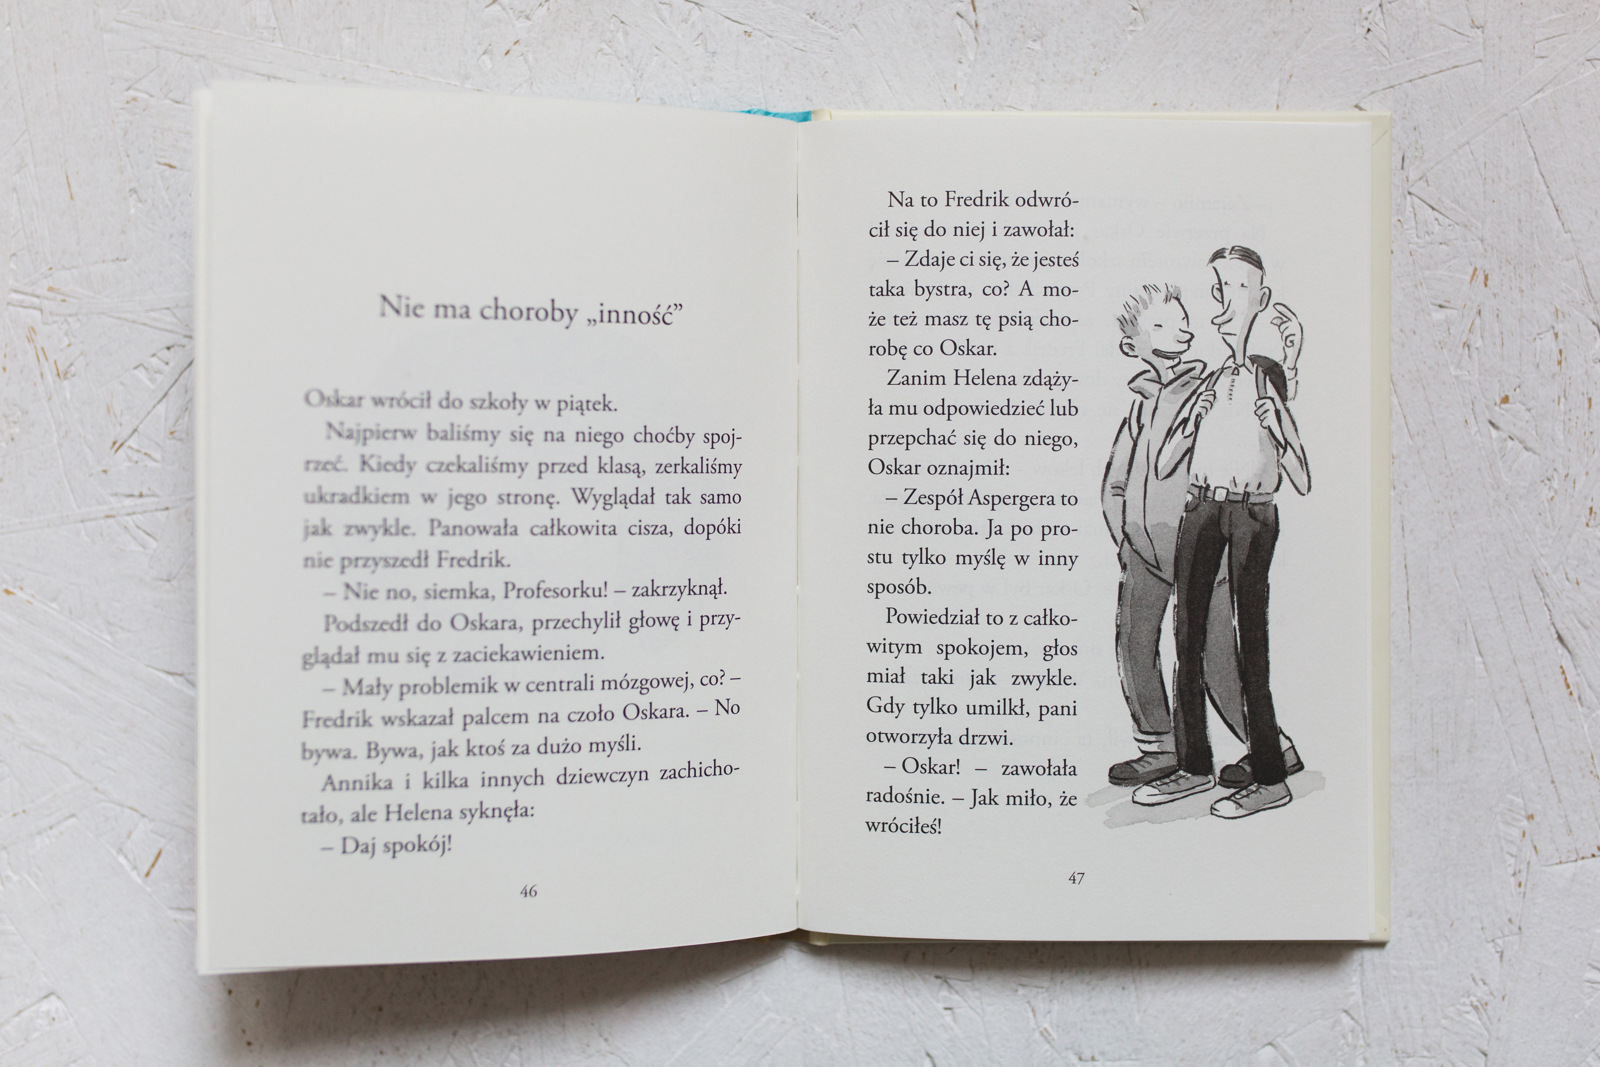 Nie ma choroby „inność”
Oskar wrócił do szkoły w piątek.
Najpierw baliśmy się na niego choćby spoj-
rzeć. Kiedy czekaliśmy przed klasą, zerkaliśmy
ukradkiem w jego stronę. Wyglądał tak samo
jak zwykle. Panowała całkowita cisza, dopóki
nie przyszedł Fredrik.
– Nie no, siemka, Profesorku! – zakrzyknął.
Podszedł do Oskara, przechylił głowę i przy-
glądał mu się z zaciekawieniem.
– Mały problemik w centrali mózgowej, co? –
Fredrik wskazał palcem na czoło Oskara. – No
bywa. Bywa, jak ktoś za dużo myśli.
Annika i kilka innych dziewczyn zachicho-
tało, ale Helena syknęła:
– Daj spokój!
46
Na to Fredrik odwró-
cił się do niej i zawołał:
– Zdaje ci się, że jesteś
taka bystra, co? A mo-
że też masz tę psią cho-
robę co Oskar.
Zanim Helena zdąży-
ła mu odpowiedzieć lub
przepchać się do niego,
Oskar oznajmił:
– Zespół Aspergera to
nie choroba. Ja po pro-
stu tylko myślę w inny
sposób.
Powiedział to z całko-
witym spokojem, głos
miał taki jak zwykle.
Gdy tylko umilkł, pani
otworzyła drzwi.
– Oskar! – zawołała
radośnie. – Jak miło, że
wróciłeś!
47